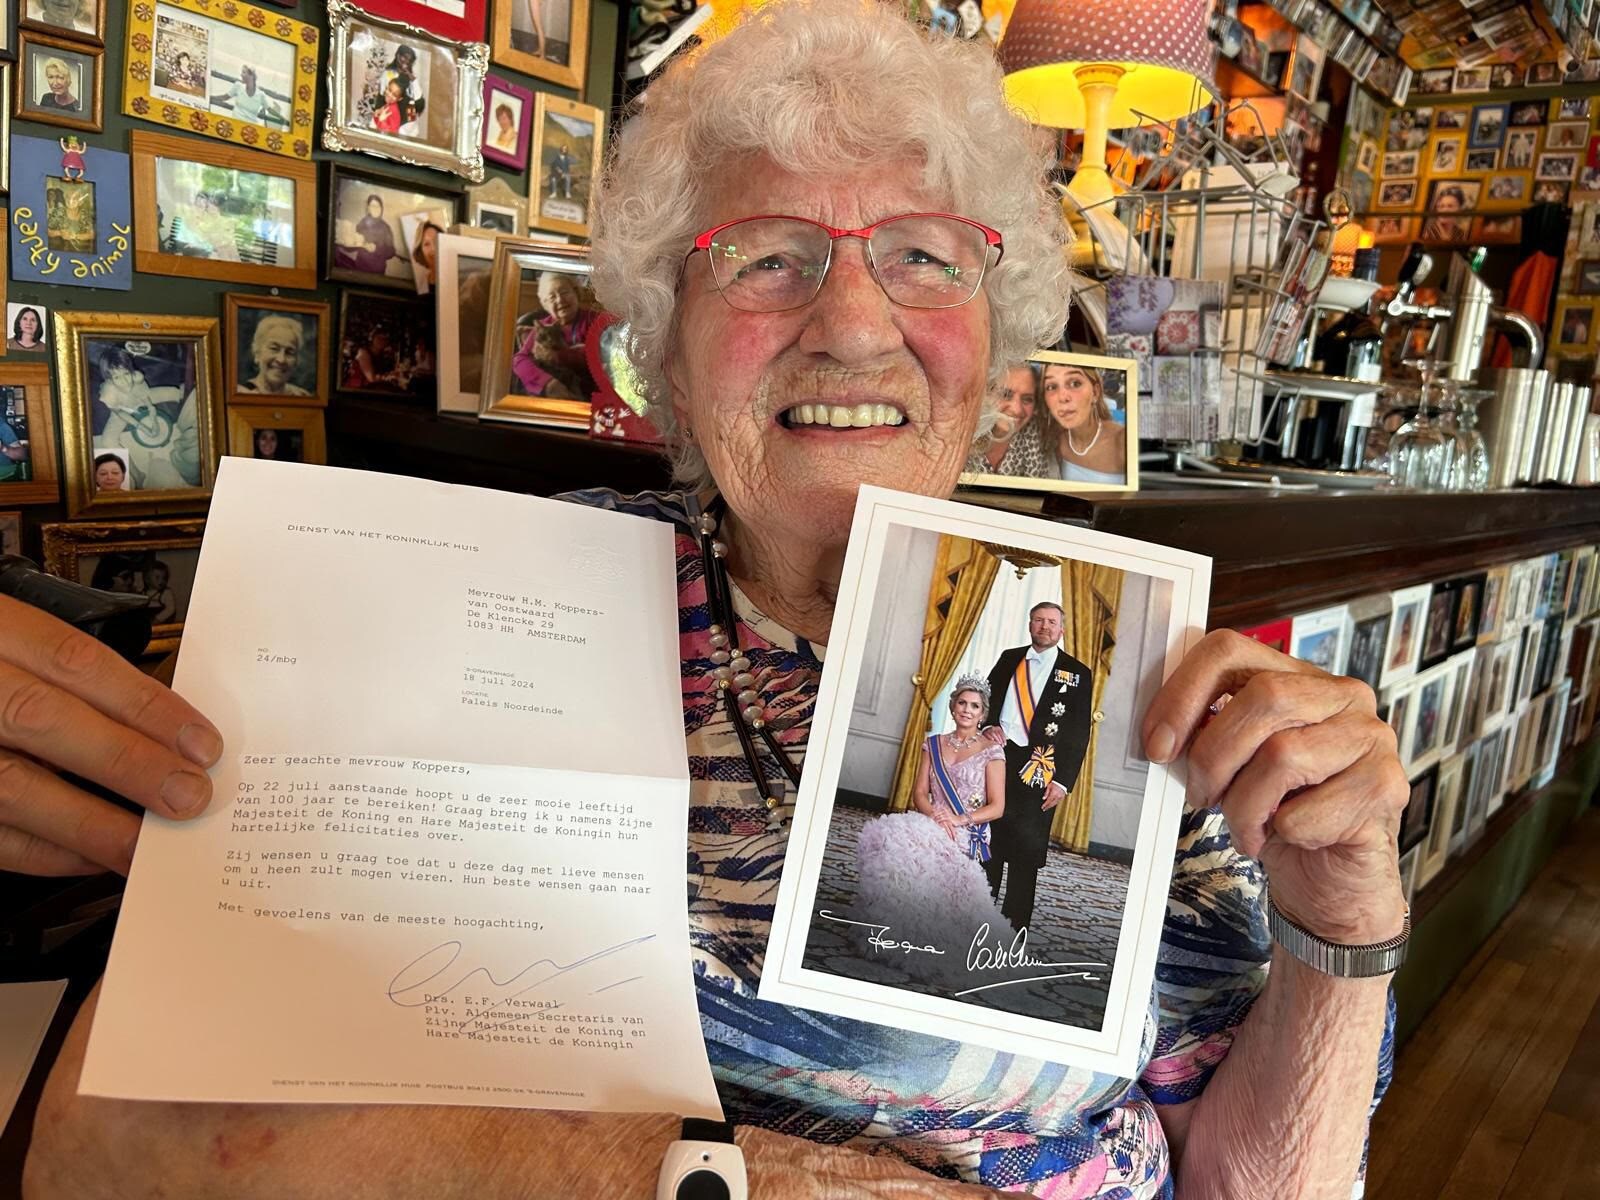 DIENST VAN HET KONINKLIJK HUIS
Mevrouw H.M. Koppers-
van Oostwaard
De Klencke 29
1083 HH AMSTERDAM
NO.
24/mbg
'S-GRAVENHAGE
18 juli 2024
LOCATIE
Paleis Noordeinde
Zeer geachte mevrouw Koppers,
Op 22 juli aanstaande hoopt u de zeer mooie leeftijd
van 100 jaar te bereiken! Graag breng ik u namens Zijne
Majesteit de Koning en Hare Majesteit de Koningin hun
hartelijke felicitaties over.
Zij wensen u graag toe dat u deze dag met lieve mensen
om u heen zult mogen vieren. Hun beste wensen gaan naar
u uit.
Met gevoelens van de meeste hoogachting,
Drs. E.F. Verwaal
Plv. Algemeen Secretaris van
Zijne Majesteit de Koning en
Hare Majesteit de Koningin
DIENST VAN HET KONINKLIJK HUIS POSTBUS 30412 2500 GK 'S-GRAVENHAGE